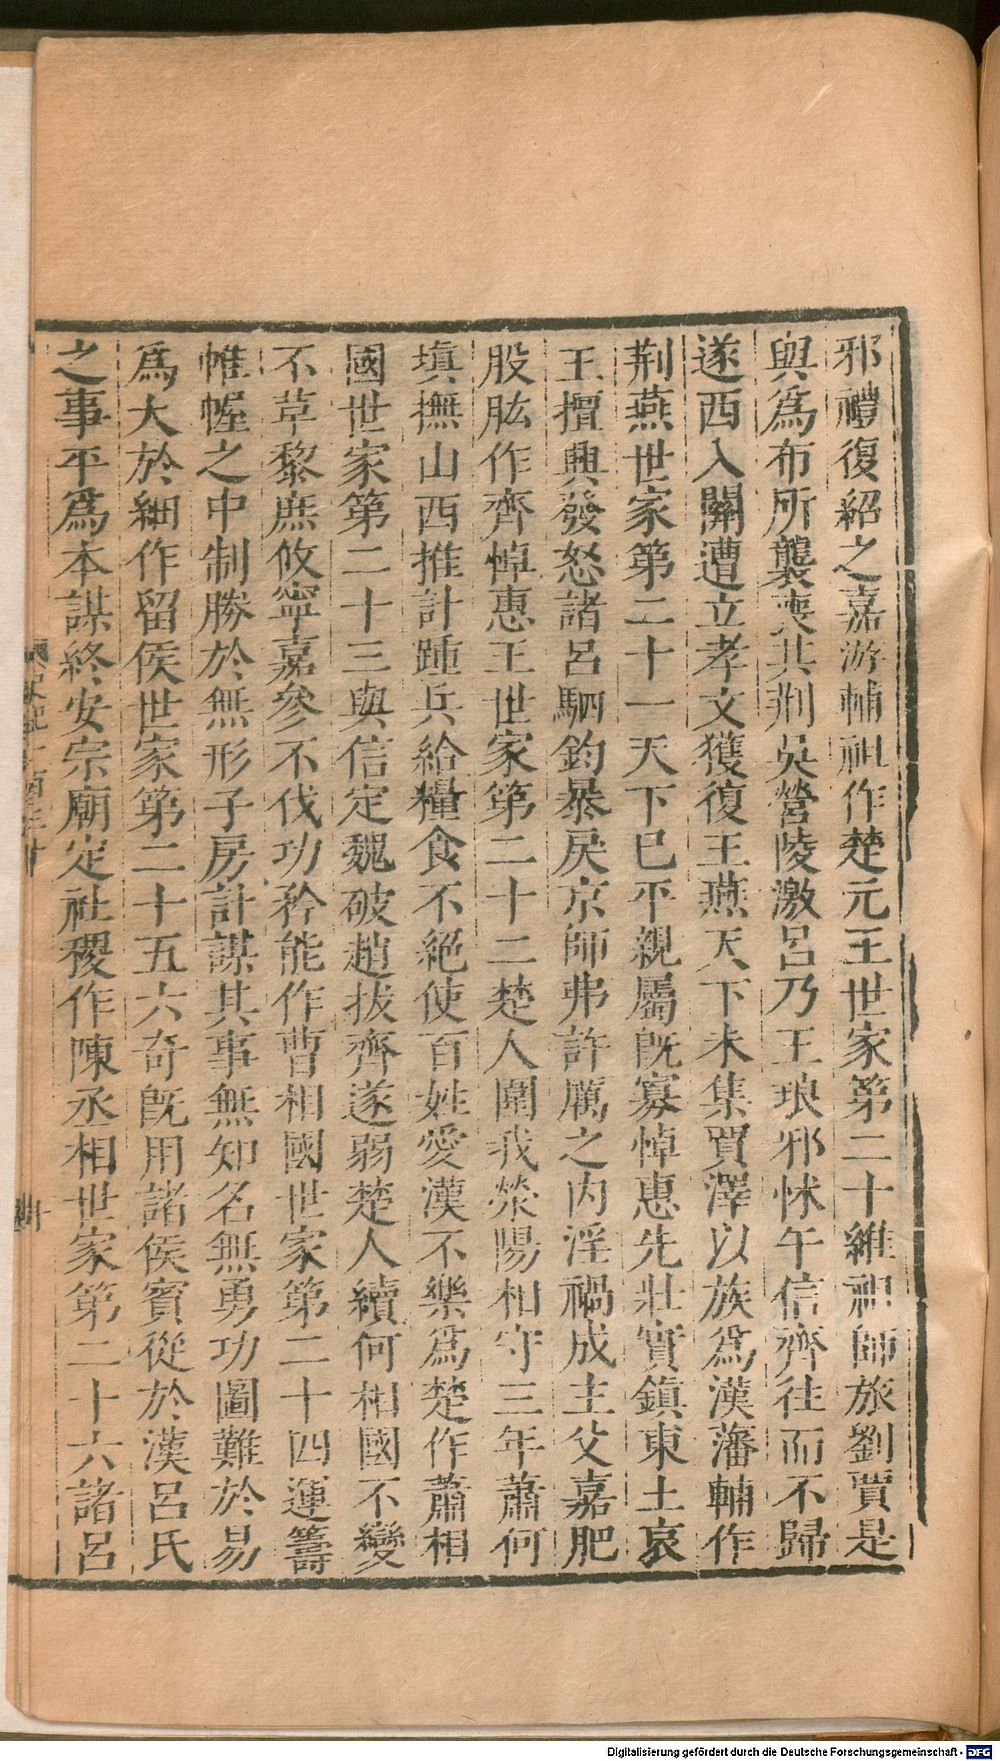 邪禮復紹之嘉游輔祖作楚元王世家第二十維祖師旅劉賈是
與爲布所襲喪其荆吳營陵激呂乃王琅邪怵午信齊往而不歸
遂西入關遭立孝文獲復王燕天下未集賈澤以族爲漢藩輔作
荆燕世家第二十一天下已平親屬旣寡悼惠先壯實鎮東土哀
王擅興發怒諸呂駟鈞暴戾京師弗許厲之内淫禍成主父嘉肥
股肱作齊悼惠王世家第二十二楚人圍我滎陽相守三年蕭何
填撫山西推計踵兵給糧食不絕使百姓愛漢不樂爲楚作蕭相
國世家第二十三與信定魏破趙拔齊遂弱楚人續何相國不變
不革黎庶攸寧嘉參不伐功矜能作曹相國世家第二十四運籌
帷幄之中制勝於無形子房計謀其事無知名無勇功圖難於易
爲大於細作留侯世家第二十五六奇旣用諸侯賓從於漢呂氏
之事平爲本謀終安宗廟定社稷作陳丞相世家第二十六諸呂
史記一百三十
十
Digitalisierung gefördert durch die Deutsche Forschungsgemeinschaft - DFG